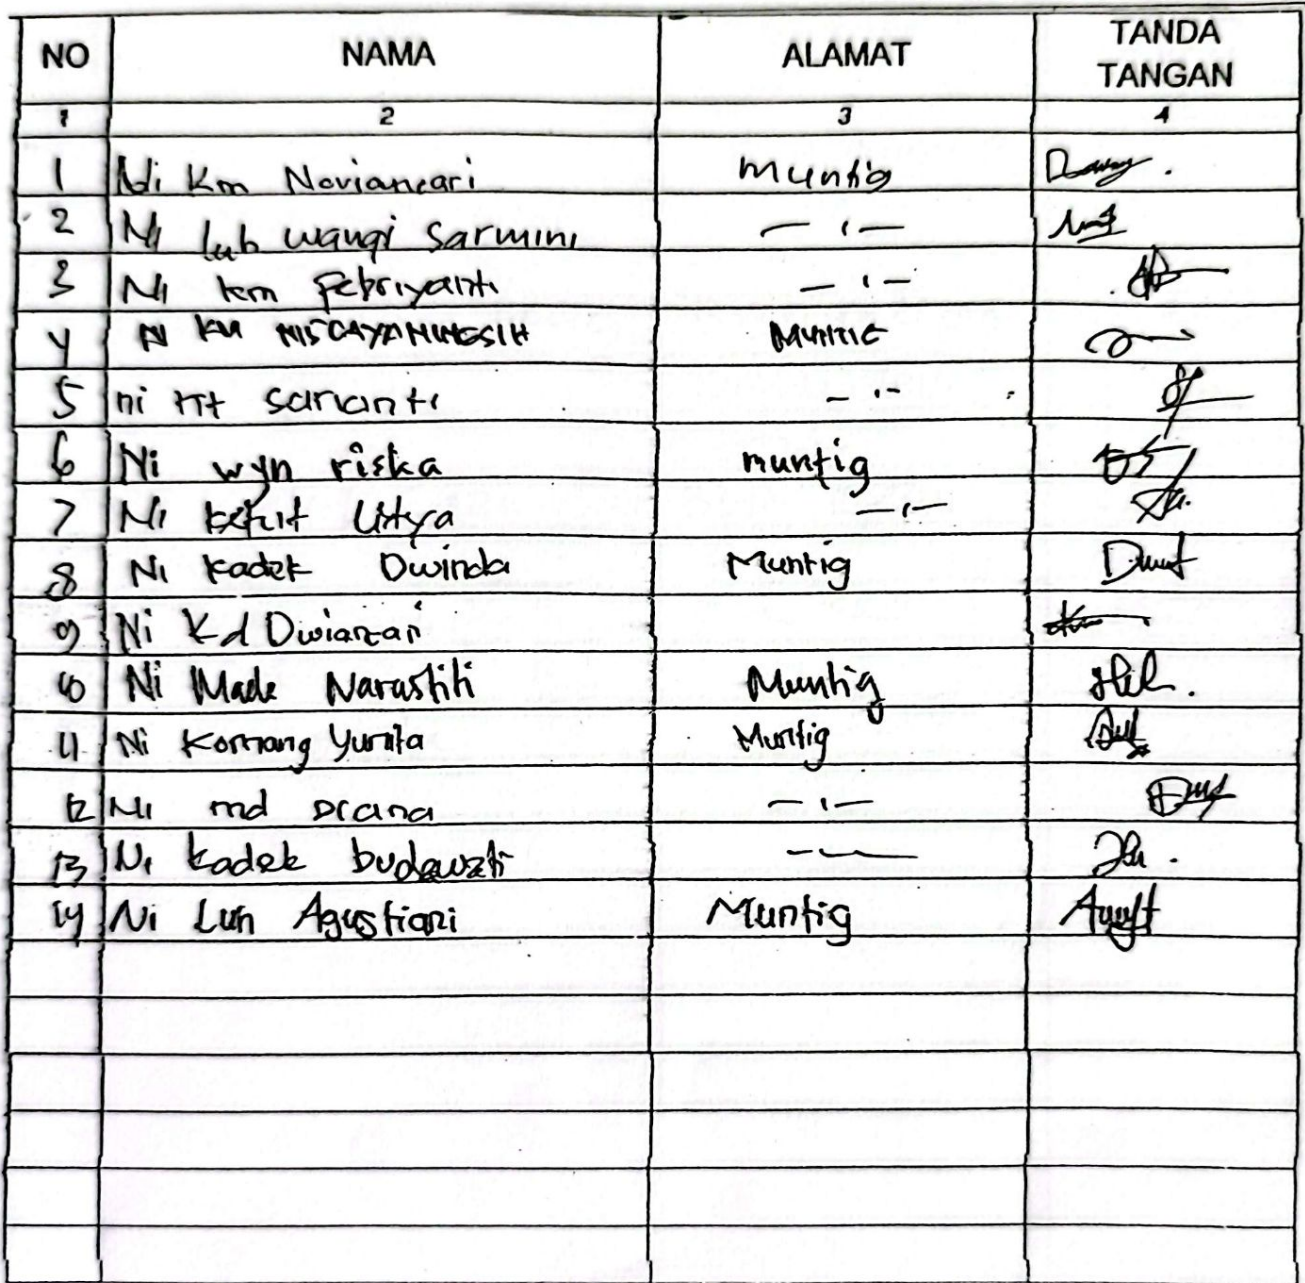 NO NAMA ALAMAT TANDA TANGAN
1 2 3 4
1 Ni Km Noviancari Muntig
2 Ni luh wangi Sarmini — ı —
3 Ni km Pebriyanti — ı —
4 N KM NISCAYANINGSIH MUNTIG
5 ni ktt sarianti — ı —
6 Ni wyn riska muntig
7 Ni ketut Listya — ı —
8 Ni kadek Dwinda Muntig
9 Ni Kd Dwiantari
10 Ni Made Narastiti Muntig
11 Ni Komang Yunita Muntig
12 Ni md Diana — ı —
13 Ni kadek budawati
14 Ni Luh Agustiani Muntig